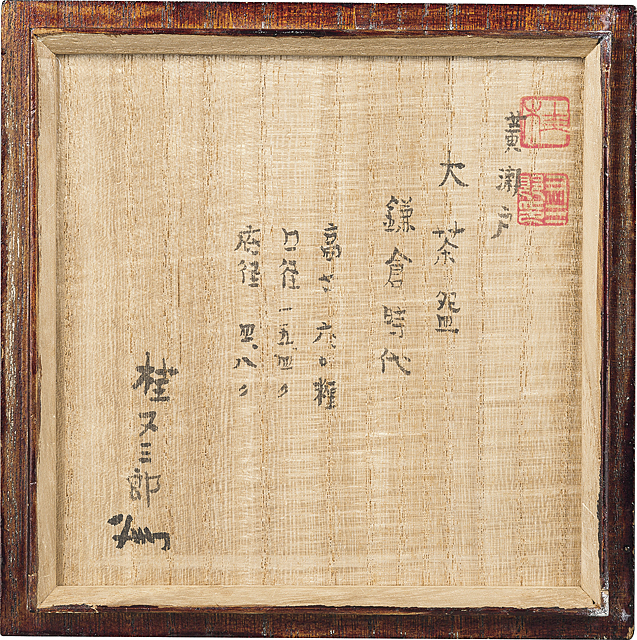 桂
黄瀬戸
大茶盌
鎌倉時代
高さ 糎
口径 一五、四〃
底径 四、八〃
桂又三郎